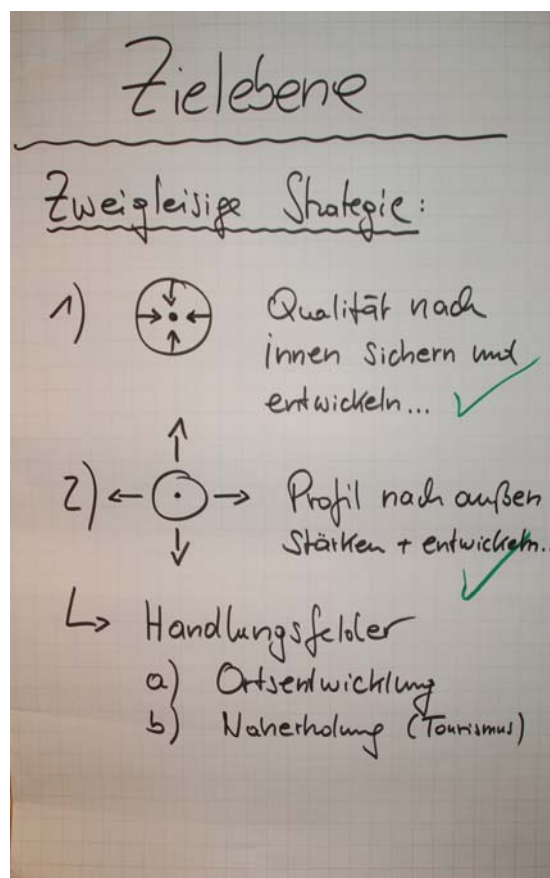 Zielebene
Zweigleisige Strategie:
1) Qualität nach
innen sichern und
entwickeln...
2) Profil nach außen
stärken + entwickeln...
Handlungsfelder
a) Ortsentwicklung
b) Naherholung (Tourismus)